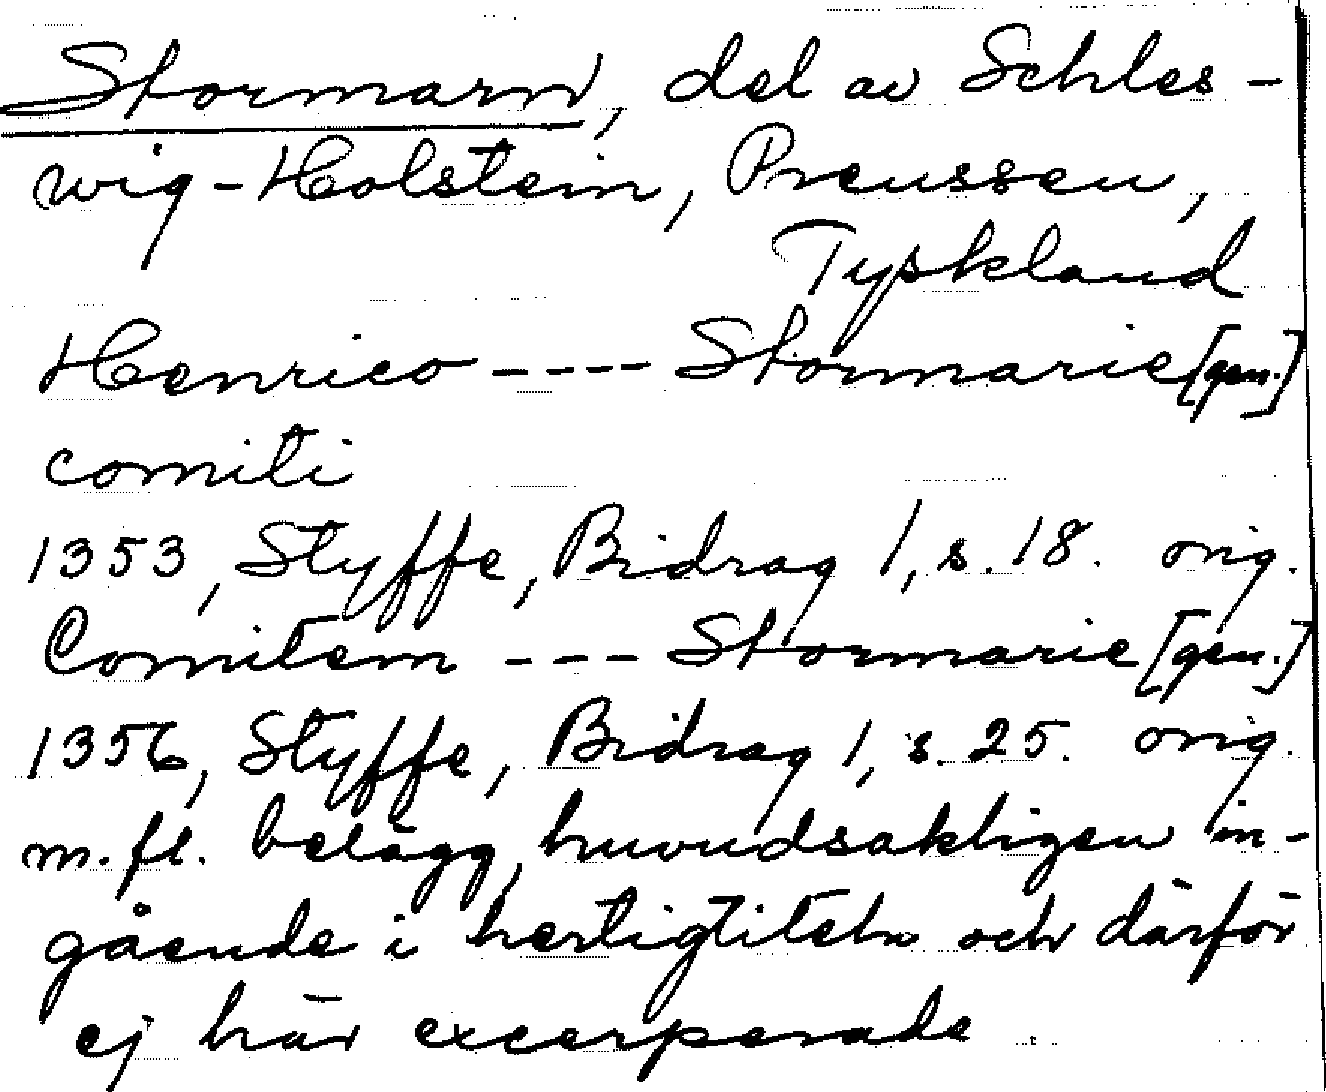 Stormarn, del av Schles-
wig-Holstein, Preussen,
Tyskland
Henrico ---- Stormarie [gen.]
comiti
1353, Styffe, Bidrag 1, s. 18. orig.
Comitem --- Stormarie [gen.]
1356, Styffe, Bidrag 1, s. 25. orig.
m. fl. belägg, huvudsakligen in-
gående i hertigtiteln och därför
ej här excerperade